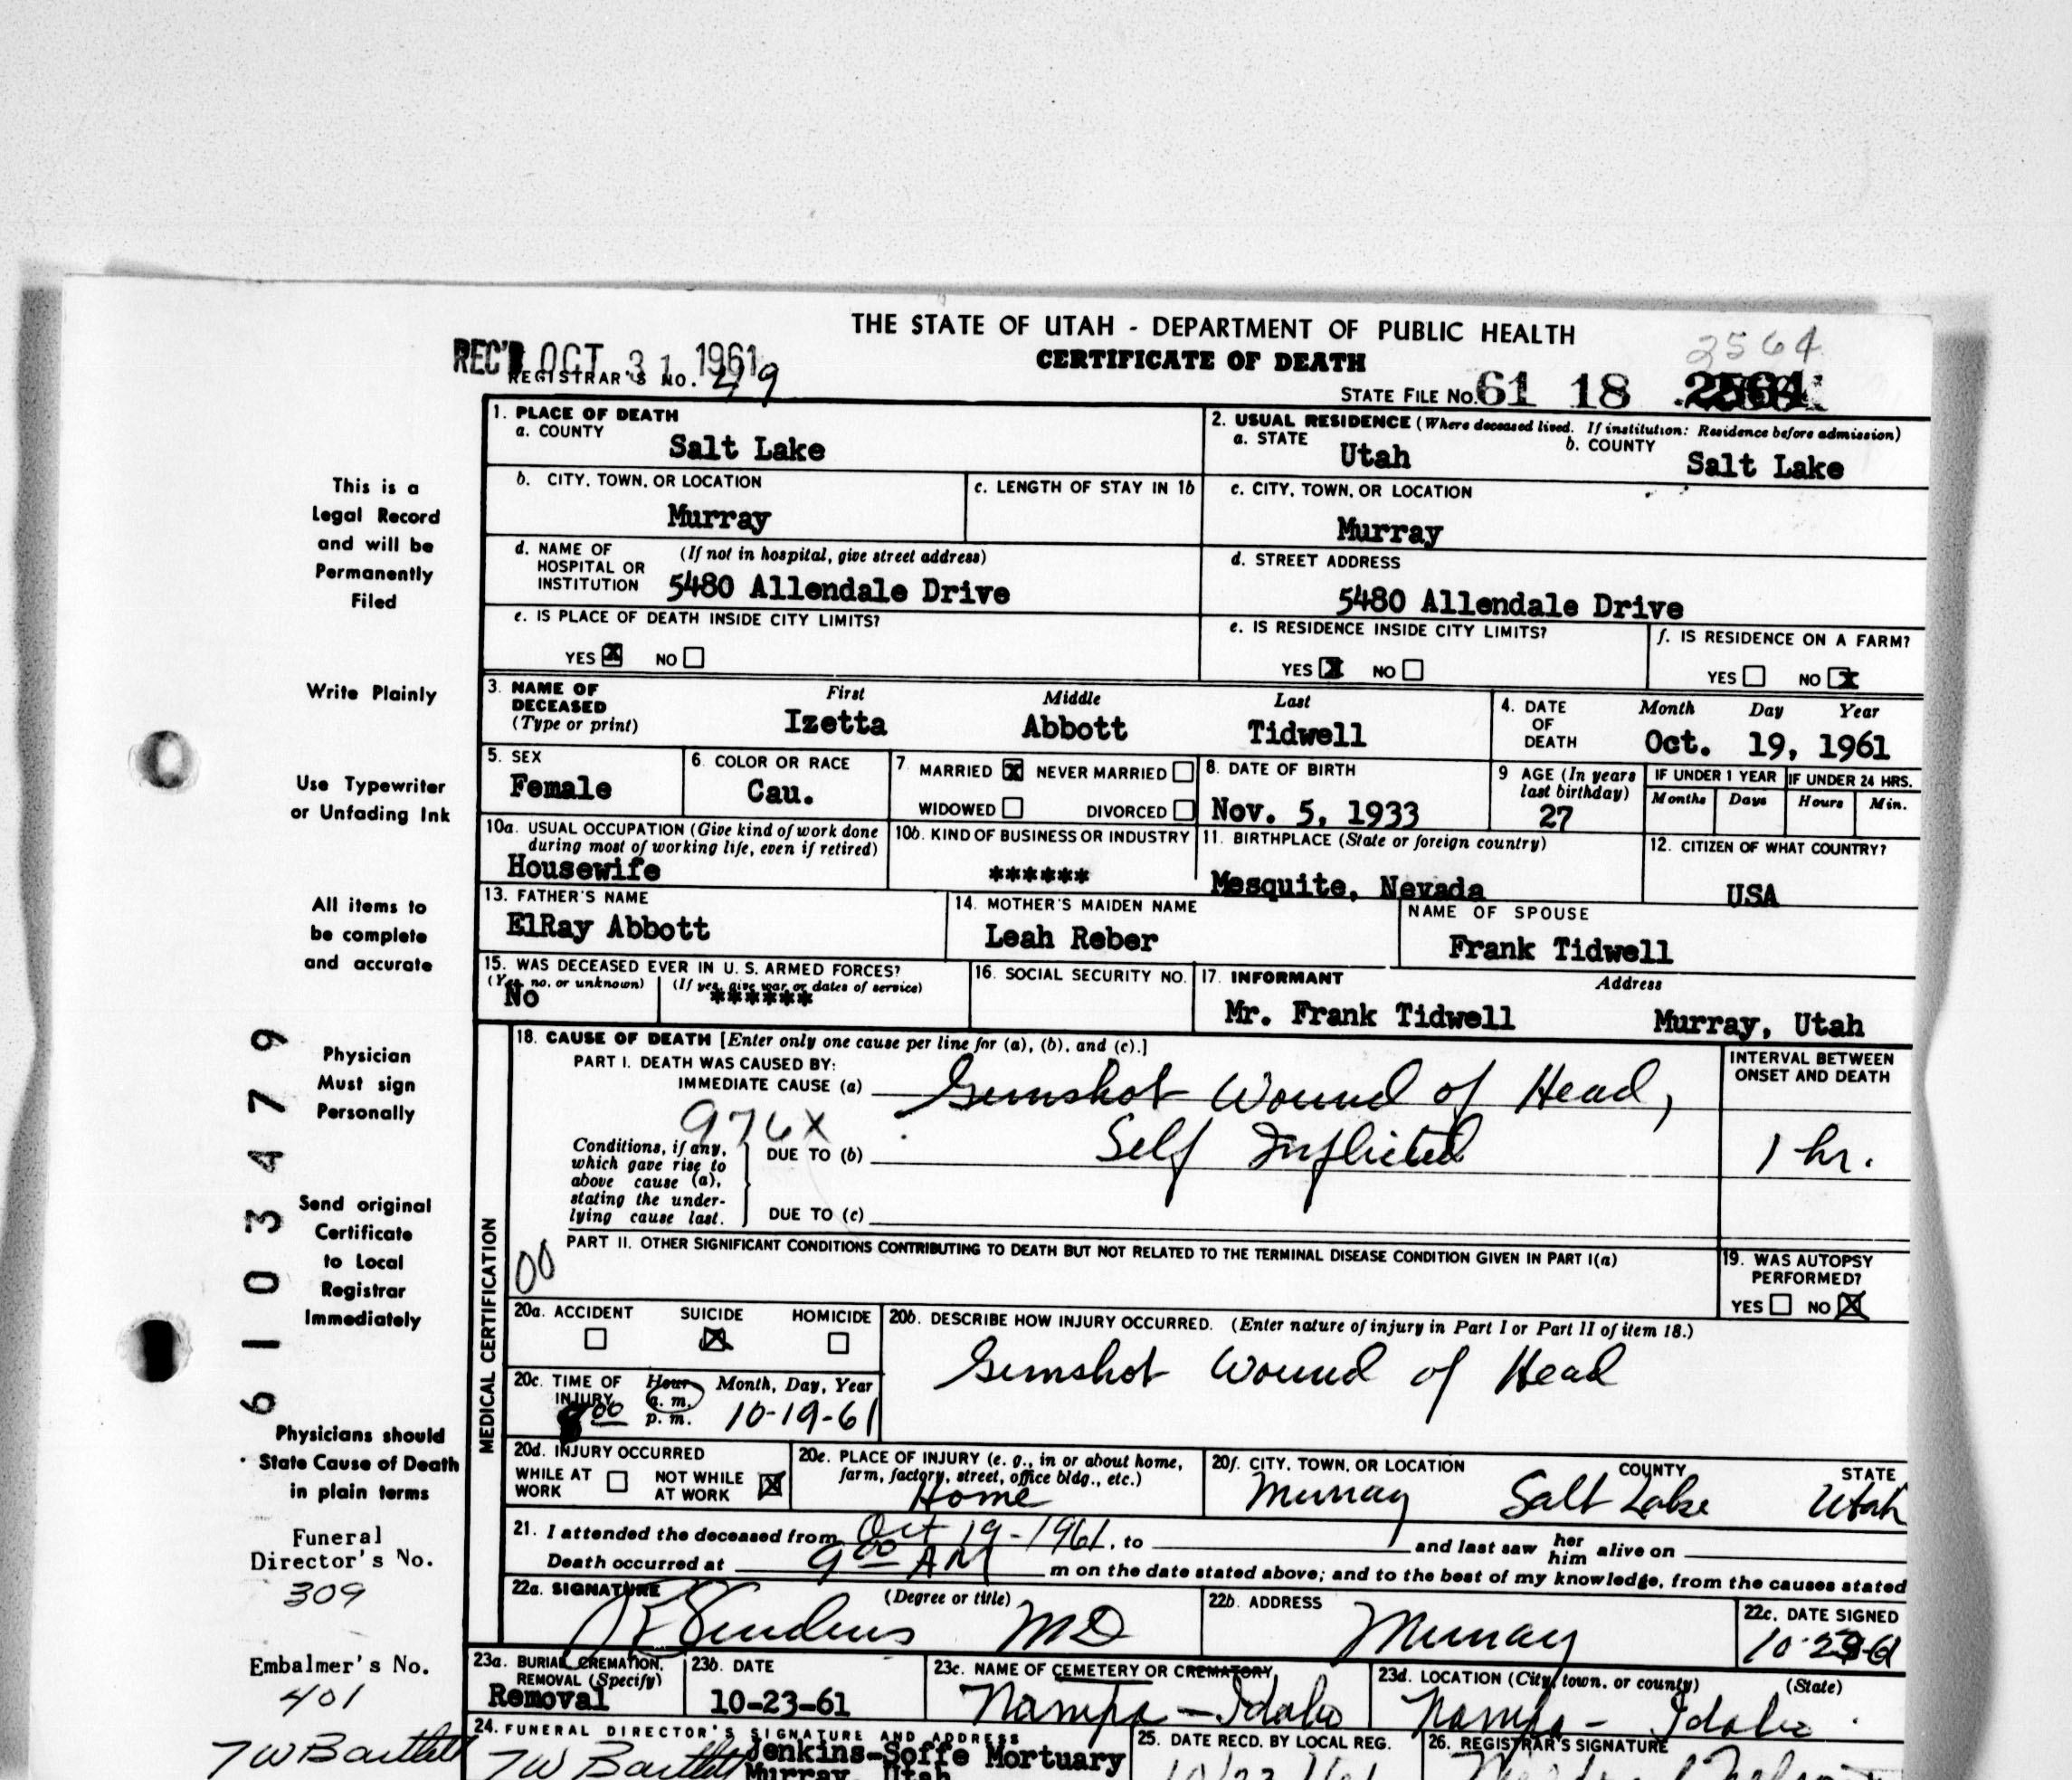 THE STATE OF UTAH - DEPARTMENT OF PUBLIC HEALTH
CERTIFICATE OF DEATH
REC'D OCT 31 1961
REGISTRAR'S NO. 49
2564
STATE FILE NO. 61 18 2564
1. PLACE OF DEATH
a. COUNTY
Salt Lake
2. USUAL RESIDENCE (Where deceased lived. If institution: Residence before admission)
a. STATE Utah b. COUNTY Salt Lake
b. CITY, TOWN, OR LOCATION
Murray
c. LENGTH OF STAY IN 1b
c. CITY, TOWN, OR LOCATION
Murray
d. NAME OF HOSPITAL OR INSTITUTION (If not in hospital, give street address)
5480 Allendale Drive
d. STREET ADDRESS
5480 Allendale Drive
e. IS PLACE OF DEATH INSIDE CITY LIMITS?
YES X NO
e. IS RESIDENCE INSIDE CITY LIMITS?
YES X NO
f. IS RESIDENCE ON A FARM?
YES NO X
3. NAME OF DECEASED (Type or print)
First Middle Last
Izetta Abbott Tidwell
4. DATE OF DEATH
Month Day Year
Oct. 19, 1961
5. SEX
Female
6. COLOR OR RACE
Cau.
7. MARRIED X NEVER MARRIED
WIDOWED DIVORCED
8. DATE OF BIRTH
Nov. 5, 1933
9 AGE (In years last birthday)
27
IF UNDER 1 YEAR IF UNDER 24 HRS.
Months Days Hours Min.
10a. USUAL OCCUPATION (Give kind of work done during most of working life, even if retired)
Housewife
10b. KIND OF BUSINESS OR INDUSTRY
******
11. BIRTHPLACE (State or foreign country)
Mesquite, Nevada
12. CITIZEN OF WHAT COUNTRY?
USA
13. FATHER'S NAME
ElRay Abbott
14. MOTHER'S MAIDEN NAME
Leah Reber
NAME OF SPOUSE
Frank Tidwell
15. WAS DECEASED EVER IN U. S. ARMED FORCES?
(Yes, no, or unknown) (If yes, give war or dates of service)
No ******
16. SOCIAL SECURITY NO.
17. INFORMANT Address
Mr. Frank Tidwell Murray, Utah
MEDICAL CERTIFICATION
18. CAUSE OF DEATH [Enter only one cause per line for (a), (b), and (c).]
PART I. DEATH WAS CAUSED BY:
IMMEDIATE CAUSE (a) Gunshot Wound of Head,
976X
Conditions, if any, which gave rise to above cause (a), stating the underlying cause last.
DUE TO (b) Self Inflicted
DUE TO (c)
INTERVAL BETWEEN ONSET AND DEATH
1 hr.
PART II. OTHER SIGNIFICANT CONDITIONS CONTRIBUTING TO DEATH BUT NOT RELATED TO THE TERMINAL DISEASE CONDITION GIVEN IN PART I(a)
00
19. WAS AUTOPSY PERFORMED?
YES NO X
20a. ACCIDENT SUICIDE HOMICIDE
X
20b. DESCRIBE HOW INJURY OCCURRED. (Enter nature of injury in Part I or Part II of item 18.)
Gunshot Wound of Head
20c. TIME OF INJURY Hour Month, Day, Year
8 00 a. m. p. m. 10-19-61
20d. INJURY OCCURRED
WHILE AT WORK NOT WHILE AT WORK X
20e. PLACE OF INJURY (e. g., in or about home, farm, factory, street, office bldg., etc.)
Home
20f. CITY, TOWN, OR LOCATION COUNTY STATE
Murray Salt Lake Utah
21. I attended the deceased from Oct 19-1961, to and last saw her him alive on
Death occurred at 9 00 AM m on the date stated above; and to the best of my knowledge, from the causes stated
22a. SIGNATURE (Degree or title)
MD
22b. ADDRESS
Murray
22c. DATE SIGNED
23a. BURIAL, CREMATION, REMOVAL (Specify)
Removal
23b. DATE
10-23-61
23c. NAME OF CEMETERY OR CREMATORY
Nampa - Idaho
23d. LOCATION (City, town, or county) (State)
Nampa - Idaho
24. FUNERAL DIRECTOR'S SIGNATURE AND ADDRESS
TW Bartlett Jenkins-Soffe Mortuary
Murray, Utah
25. DATE RECD. BY LOCAL REG.
26. REGISTRAR'S SIGNATURE
This is a
Legal Record
and will be
Permanently
Filed
Write Plainly
Use Typewriter
or Unfading Ink
All items to
be complete
and accurate
Physician
Must sign
Personally
Send original
Certificate
to Local
Registrar
Immediately
Physicians should
State Cause of Death
in plain terms
Funeral
Director's No.
309
Embalmer's No.
401
TW Bartlett
6103479